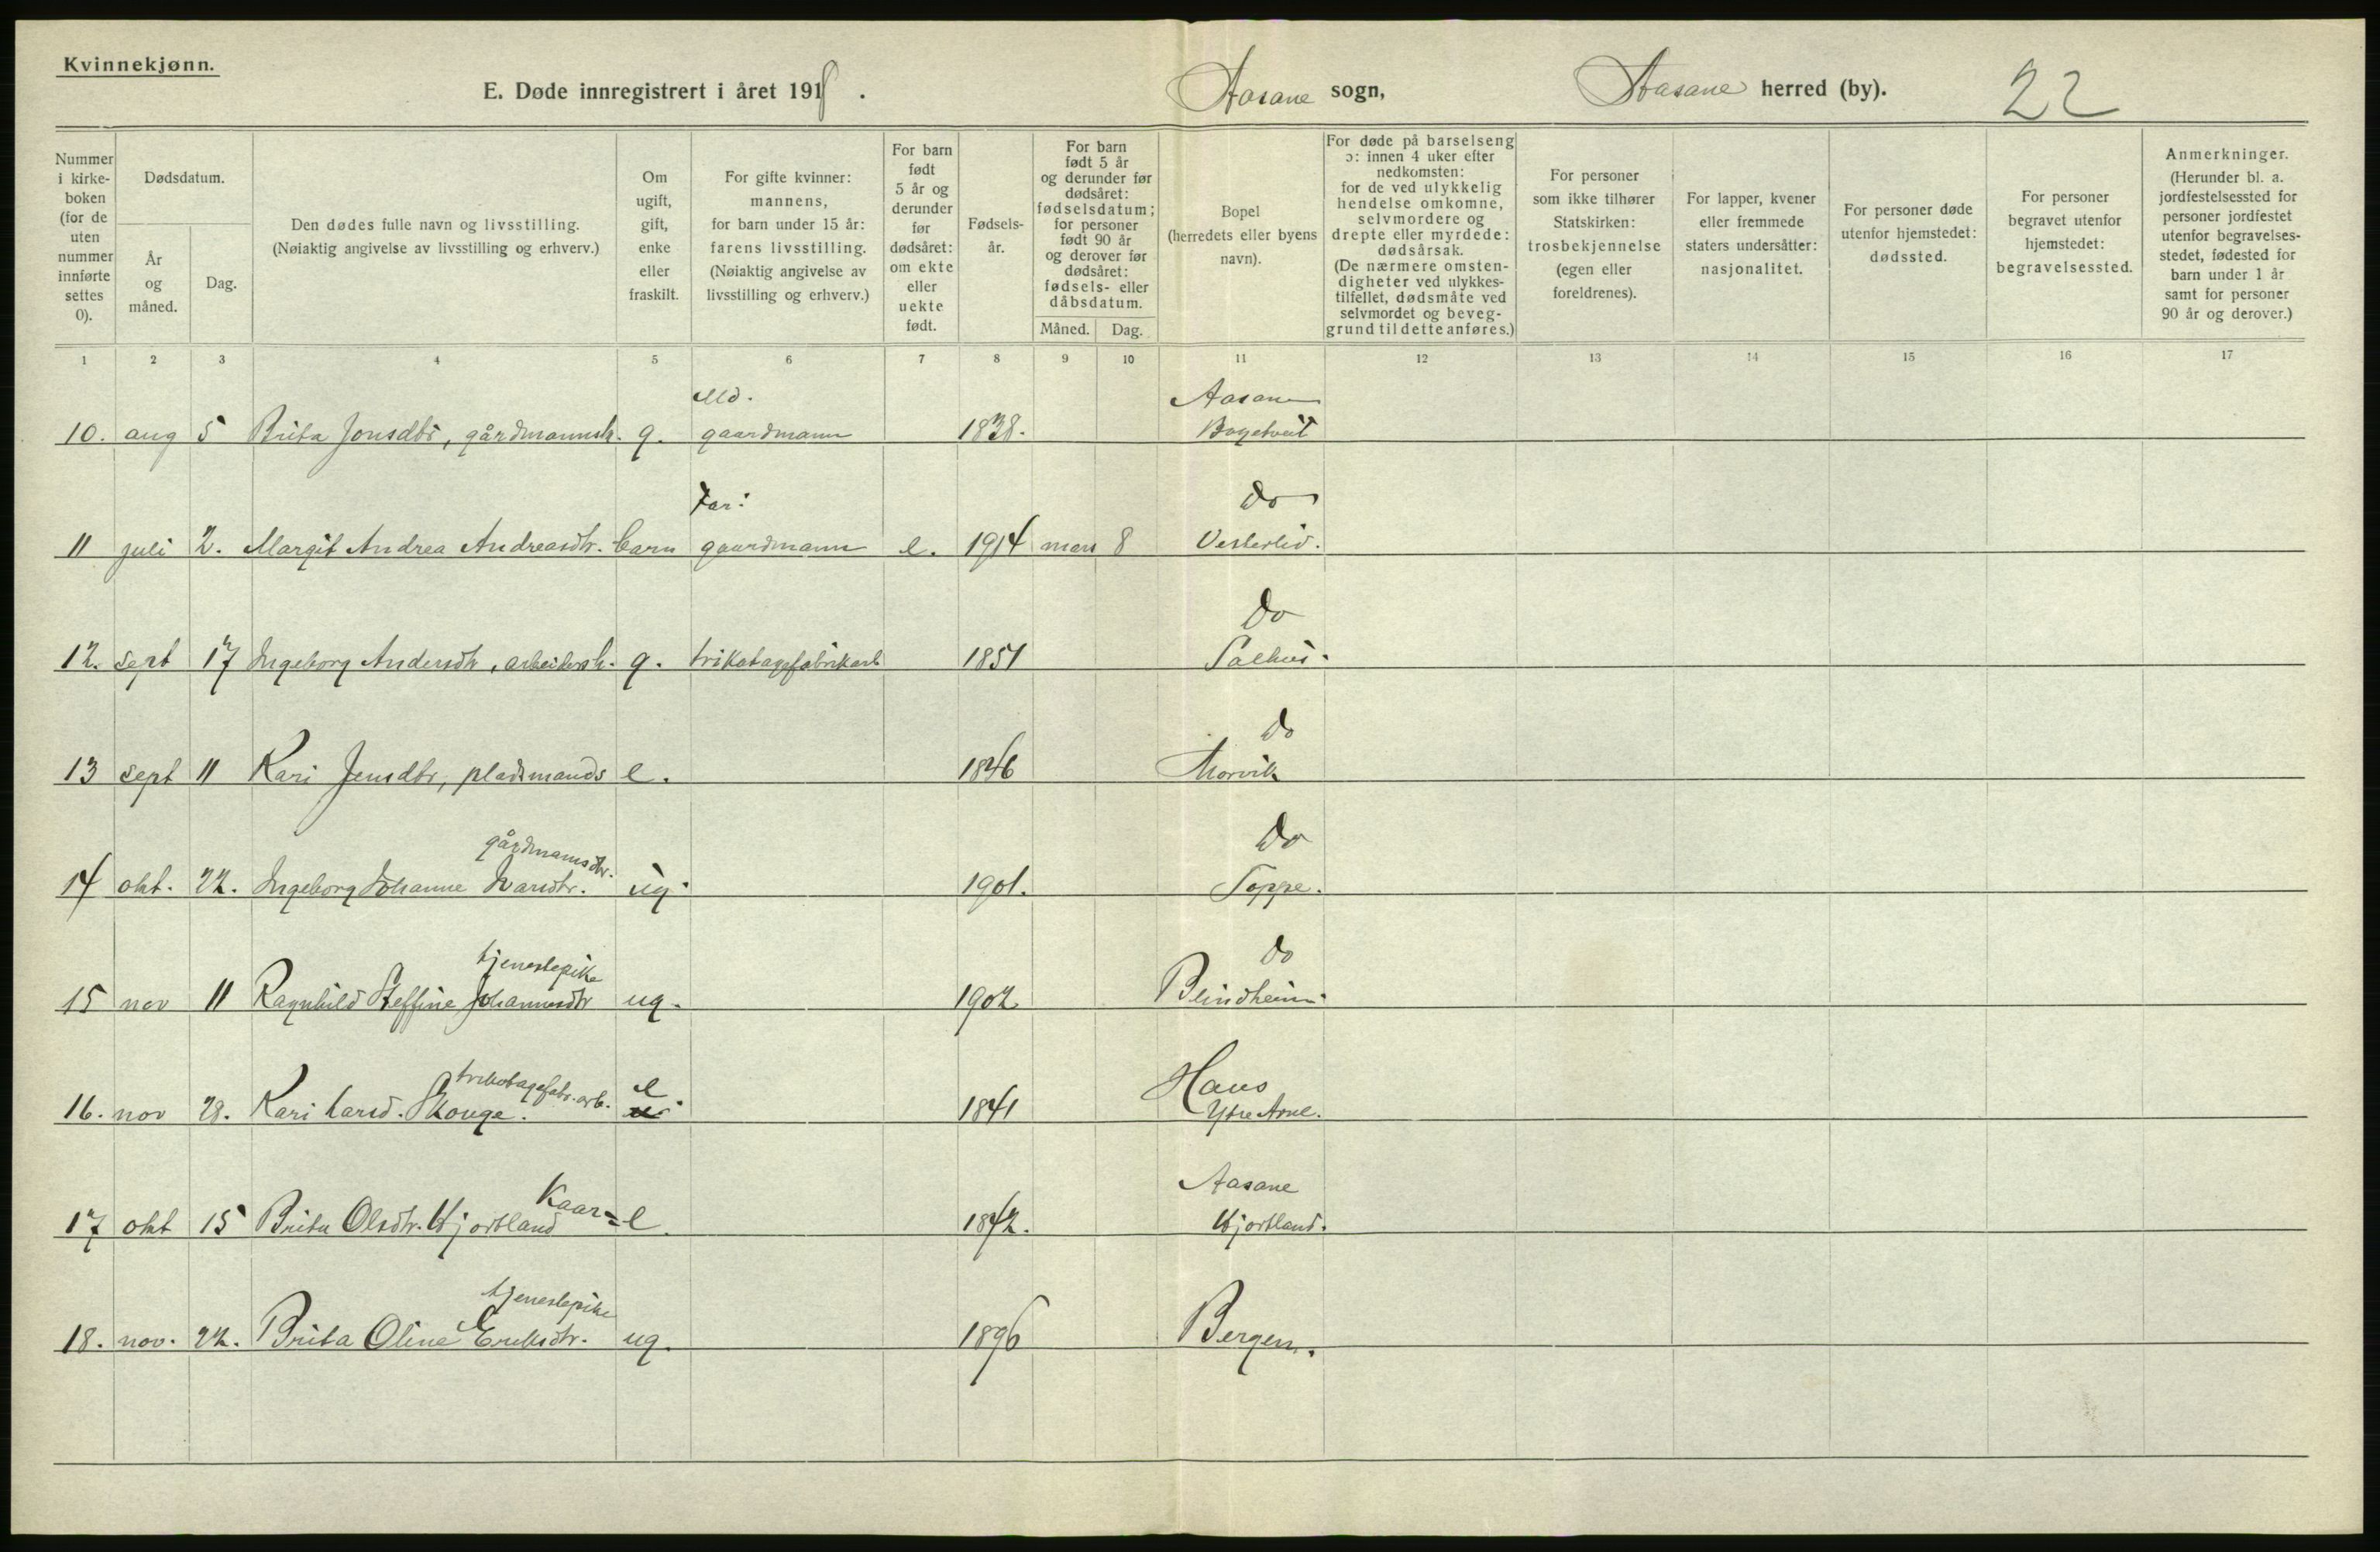 Kvinnekjønn.
E. Døde innregistrert i året 1918.
Aasane sogn,
Aasane herred (by).
22
Nummer i kirke- boken (for de uten nummer innførte settes 0).
Dødsdatum.
År og måned.
Dag.
Den dødes fulle navn og livsstilling. (Nøiaktig angivelse av livsstilling og erhverv.)
Om ugift, gift, enke eller fraskilt.
For gifte kvinner: mannens, for barn under 15 år: farens livsstilling. (Nøiaktig angivelse av livsstilling og erhverv.)
For barn født 5 år og derunder før dødsåret: om ekte eller uekte født.
Fødsels- år.
For barn født 5 år og derunder før dødsåret: fødselsdatum; for personer født 90 år og derover før dødsåret: fødsels- eller dåbsdatum.
Måned.
Dag.
Bopel (herredets eller byens navn).
For døde på barselseng ɔ: innen 4 uker efter nedkomsten: for de ved ulykkelig hendelse omkomne, selvmordere og drepte eller myrdede: dødsårsak. (De nærmere omsten- digheter ved ulykkes- tilfellet, dødsmåte ved selvmordet og beveg- grund til dette anføres.)
For personer som ikke tilhører Statskirken: trosbekjennelse (egen eller foreldrenes).
For lapper, kvener eller fremmede staters undersåtter: nasjonalitet.
For personer døde utenfor hjemstedet: dødssted.
For personer begravet utenfor hjemstedet: begravelsessted.
Anmerkninger. (Herunder bl. a. jordfestelsessted for personer jordfestet utenfor begravelses- stedet, fødested for barn under 1 år samt for personer 90 år og derover.)
1 2 3 4 5 6 7 8 9 10 11 12 13 14 15 16 17
Md. Aasane
10. aug 5 Brita Jonsdtr, gårdmannsh. g. gaardmann 1838.
Far: Do
11 juli 2. Margit Andrea Andreasdtr. barn gaardmann e. 1914 mars 8 Vesterlid.
Do
12. sept 17 Ingeborg Andersdtr, arbeidersh. g. trikotagefabrikarb 1851 Salhus.
Do
13 sept 11 Kari Jensdtr, pladsmands e. 1846 Morvik
gårdmannsdtr. Do
14 okt. 22. Ingeborg Johanne Ivarsdtr. ug. 1901. Toppe.
tjenestepike Do
15 nov 11 Ragnhild Steffine Johannesdtr ug. 1902 Blindheim.
trikotagefabr. arb. e Haus
16. nov 28. Kari Larsd. Skouge. 1841 Ytre Arne.
Kaar= Aasane
17 okt 15 Brita Olsdtr. Hjortland e. 1842. Hjortland.
tjenestepike
18. nov. 22. Brita Oline Eriksdtr. ug. 1896 Bergen.